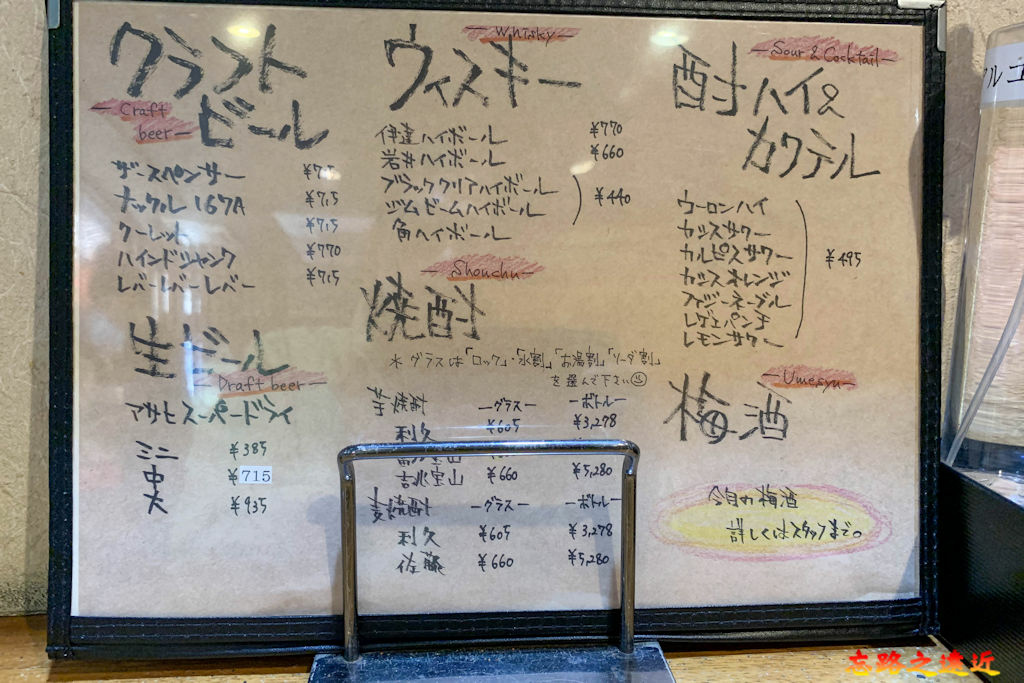 クラフト
ビール
Craft
beer
ザ・スペンサー ¥715
ナックル 167A ¥715
クーレット ¥715
ハインドシャンク ¥770
レバーレバーレバー ¥715
生ビール
Draft beer
アサヒスーパードライ
ミニ ¥385
中 ¥715
大 ¥935
ウィスキー
Whisky
伊達ハイボール ¥770
岩井ハイボール ¥660
ブラッククリアハイボール
ジムビームハイボール ¥440
角ハイボール
Shouchu
焼酎
＊グラスは「ロック」・「水割」「お湯割」「ソーダ割」
を選んで下さい
芋焼酎 ーグラスー ーボトルー
利久 ¥605 ¥3,278
吉兆宝山 ¥660 ¥5,280
麦焼酎 ーグラスー ーボトルー
利久 ¥605 ¥3,278
佐藤 ¥660 ¥5,280
Sour & Cocktail
酎ハイ&
カクテル
ウーロンハイ
カシスサワー
カルピスサワー ¥495
カシスオレンジ
ファジーネーブル
レゲエパンチ
レモンサワー
Umesyu
梅酒
今月の梅酒
詳しくはスタッフまで。
忘路之遠近